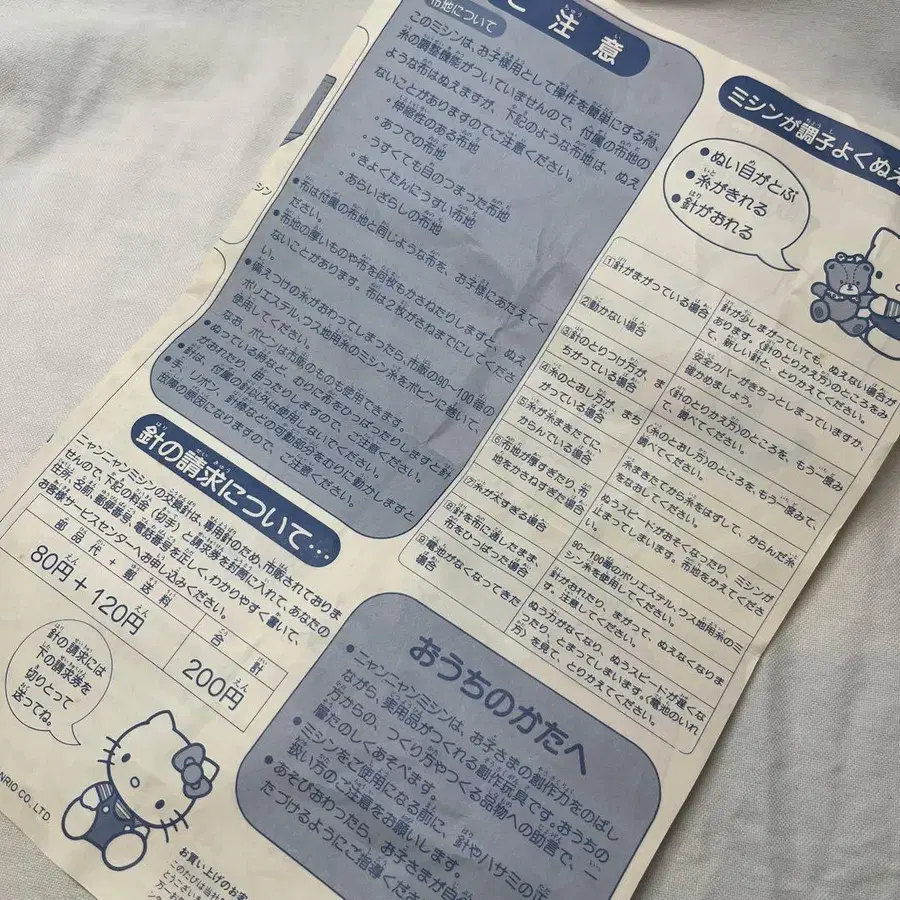 ご注意
布地について
このミシンは、お子様用として操作を簡単にする為、
糸の調整機能がついていませんので、付属の布地の
ような布はぬえますが、下記のような布地は、ぬえ
ないことがありますのでご注意ください。
・伸縮性のある布地
・あつでの布地
・うすくても目のつまった布地
・きょくたんにうすい布地
・あらいざらしの布地
●布は付属の布地と同じような布を、お子様にあたえてく
ださい。
●布地の厚いものや布を何枚もかさねたりしますと、ぬえ
ないことがあります。布は2枚がさねまでにしてください。
●備えつけの糸がおわってしまったら、市販の90〜100番の
ポリエステル、ウス地用糸のミシン糸をボビンに巻いて
使用してください。
なお、ボビンは市販のものも使用できます。
●ぬっている時など、むりに布をひっぱったりしますと針
がおれたり、曲ったりしますので、ご注意ください。
●針は、付属の針以外は使用しないでください。
●手、リボン、針棒などの可動部分をむりに動かしますと
故障の原因になりますので、ご注意ください。
針の請求について…
ニャンニャンミシンの交換針は、専用針のため、市販されておりま
せんので、下記の料金(切手)と請求券を封筒に入れて、あなたの
住所、名前、郵便番号、電話番号を正しく、わかりやすく書いて、
お客様サービスセンターへお申し込みください。
部品代+郵送料
合計
80円+120円
200円
針の請求には
下の請求券を
切りとって
送ってね。
NRIO CO., LTD.
お買い上げのお客
このたびは当社
とうござい
ミシン
ミシンが調子よくぬえ
●ぬい目がとぶ
●糸がきれる
●針がおれる
1 針がまがっている場合
針が少しまがっていても、ぬえない場合が
あります。〈針のとりかえ方〉のところをみ
て、新しい針と、とりかえてください。
2 動かない場合
安全カバーがきちっとしまっていますか、
確かめましょう。
3 針のとりつけ方が、ま
ちがっている場合
〈針のとりかえ方〉のところを、もう一度み
て、調べてください。
4 糸のとおし方が、まち
がっている場合
〈糸のとおし方〉のところを、もう一度みて、
調べてください。
5 糸が糸まきたてに
からんでいる場合
糸まきたてから糸をはずして、からんだ糸
をなおしてください。
6 布地が厚すぎたり、布
地をかさねすぎた場合
ぬうスピードがおそくなったり、ミシンが
止まってしまいます。布地をかえてくださ
い。
7 糸が太すぎる場合
90〜100番のポリエステル、ウス地用糸のミ
シン糸を使用してください。
8 針を布に通したまま、
布をひっぱった場合
針がおれたり、まがって、ぬえなくなりま
す。注意してください。
9 電池がなくなってきた
場合
ぬう力がなくなり、ぬうスピードが遅くな
ったり、とまってしまいます。〈電池のいれ
方〉を見て、とりかえてください。
おうちのかたへ
●ニャンニャンミシンは、お子さまの創作力をのばし
ながら、実用品がつくれる創作玩具です。おうちの
方からの、つくり方やつくる品物への助言で、一
層たのしくあそべます。
●ミシンをご使用になる前に、針やハサミの正
扱い方のご注意をお願いします。
●あそびおわったら、お子さまが自分
たづけるようにご指導くださ